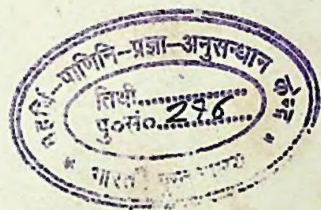 महर्षि-पाणिनि-प्रज्ञा-अनुसन्धान केन्द्र
तिथी..................
पु०सं० 276
* भारती *